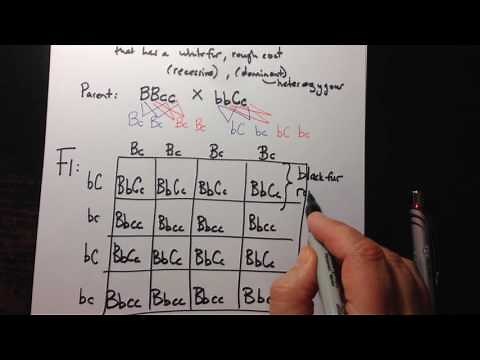 that has a white fur, rough coat
(recessive), (dominant),
heterozygous
Parent: BBcc × bbCc
Bc Bc Bc Bc bC bc bC bc
Bc Bc Bc Bc
F1:
bC BbCc BbCc BbCc BbCc black fur
bc Bbcc Bbcc Bbcc Bbcc
bC BbCc BbCc BbCc BbCc
bc Bbcc Bbcc Bbcc Bbcc